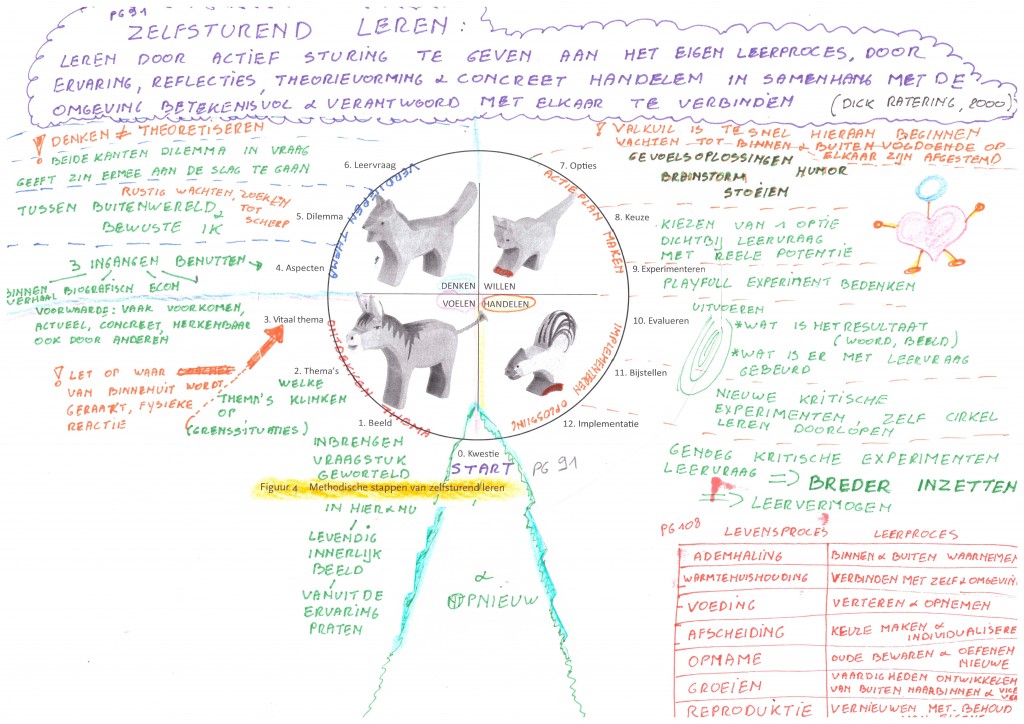 PG 91
ZELFSTUREND LEREN:
LEREN DOOR ACTIEF STURING TE GEVEN AAN HET EIGEN LEERPROCES, DOOR
ERVARING, REFLECTIES, THEORIEVORMING & CONCREET HANDELEM IN SAMENHANG MET DE
OMGEVING BETEKENISVOL & VERANTWOORD MET ELKAAR TE VERBINDEN (DICK RATERING, 2000)
! DENKEN ≠ THEORETISEREN
BEIDE KANTEN DILEMMA IN VRAAG
GEEFT ZIN ERMEE AAN DE SLAG TE GAAN
RUSTIG WACHTEN, ZOEKEN
TOT
SCHERP
TUSSEN BUITENWERELD
&
BEWUSTE IK
3 INGANGEN BENUTTEN
BINNEN
VERHAAL BIOGRAFISCH ECOM
VOORWAARDE: VAAK VOORKOMEN,
ACTUEEL, CONCREET, HERKENBAAR
OOK DOOR ANDEREN
! LET OP WAAR
VAN BINNENUIT WORDT
GERAAKT, FYSIEKE
REACTIE
WELKE
THEMA'S KLINKEN
OP
(GRENSSITUATIES)
INBRENGEN
VRAAGSTUK
GEWORTELD
6. Leervraag
5. Dilemma
4. Aspecten
3. Vitaal thema
2. Thema's
1. Beeld
0. Kwestie
START PG 91
7. Opties
8. Keuze
9. Experimenteren
10. Evalueren
11. Bijstellen
12. Implementatie
VERDIEPEN THEMA
ACTIEPLAN MAKEN
ONTDEKKEN THEMA
IMPLEMENTEREN OPLOSSING
DENKEN WILLEN
VOELEN HANDELEN
Figuur 4 Methodische stappen van zelfsturend leren
IN HIER & NU
LEVENDIG
INNERLIJK
BEELD
VANUIT DE
ERVARING
PRATEN
&
OPNIEUW
! VALKUIL IS TE SNEL HIERAAN BEGINNEN
WACHTEN TOT BINNEN & BUITEN VOLDOENDE OP
ELKAAR ZIJN AFGESTEMD
GEVOELSOPLOSSINGEN
HUMOR
BRAINSTORM
STOEIEN
KIEZEN VAN 1 OPTIE
DICHTBIJ LEERVRAAG
MET REELE POTENTIE
PLAYFULL EXPERIMENT BEDENKEN
UITVOEREN
*WAT IS HET RESULTAAT
(WOORD, BEELD)
*WAT IS ER MET LEERVRAAG
GEBEURD
NIEUWE KRITISCHE
EXPERIMENTEN, ZELF CIRKEL
LEREN DOORLOPEN
GENOEG KRITISCHE EXPERIMENTEN
LEERVRAAG => BREDER INZETTEN
=> LEERVERMOGEN
PG 108
LEVENSPROCES LEERPROCES
ADEMHALING BINNEN & BUITEN WAARNEMEN
WARMTEHUISHOUDING VERBINDEN MET ZELF & OMGEVIN
VOEDING VERTEREN & OPNEMEN
AFSCHEIDING KEUZE MAKEN & INDIVIDUALISERE
OPNAME OUDE BEWAREN & OEFENEN NIEUWE
GROEIEN VAARDIGHEDEN ONTWIKKELEM
VAN BUITEN NAAR BINNEN & VICE VER
REPRODUKTIE VERNIEUWEN MET BEHOUD